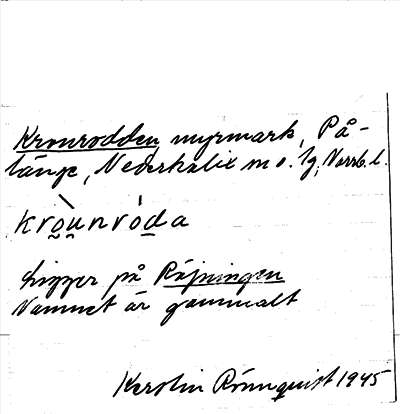 Kronrodden myrmark, På-
länge, Nederkalix sn o. tg, Norrb. l.
kro̠u̠nród̠a
Ligger på Röjningen
Namnet är gammalt
Kerstin Rönnquist 1945